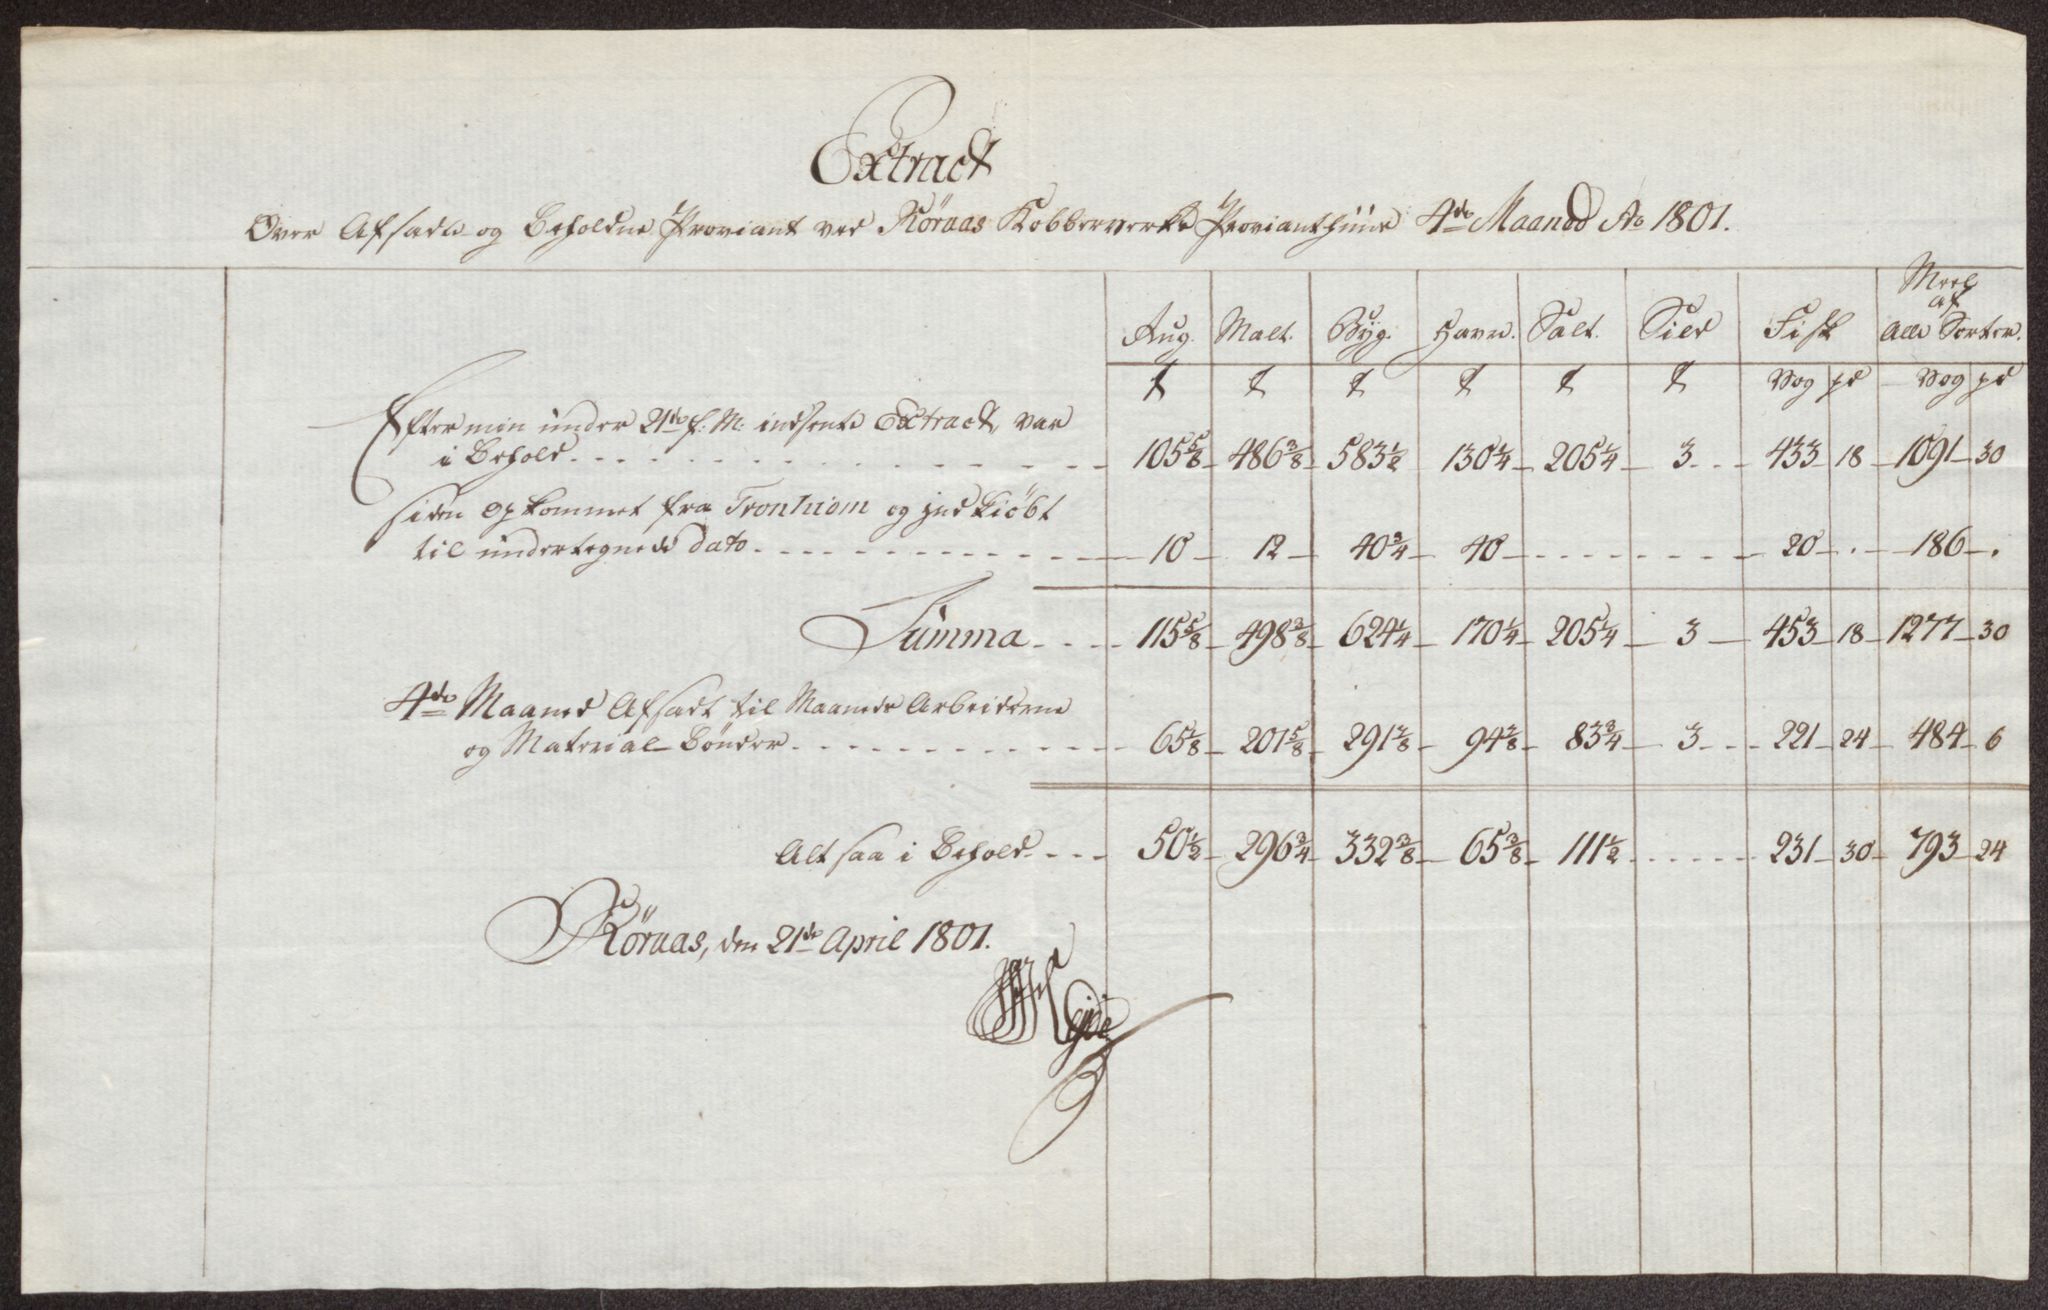 Extract
Over Afsadte og Beholdne Proviant ved Röraas Kobberverks Provianthuus 4de Maaned Ao 1801.
Rug. Malt. Byg. Havre. Salt. Sild Fisk Meel af Alle Sorter.
t t t t t t Vog pd Vog pd
Efter min under 21de f: M: indsente Extract, var
i Behold 105 5/8 486 3/8 583 1/2 130 1/4 205 1/4 3 433 18 1091 30
siden opkommet fra Tronhiem og indkiöbt
til undertegnede dato 10 12 40 3/4 40 20 . 186 .
Summa 115 5/8 498 3/8 624 1/4 170 1/4 205 1/4 3 453 18 1277 30
4de Maaned Afsadt til Maaneds Arbeiderne
og Material Bönder 65 1/8 201 5/8 291 7/8 94 7/8 83 3/4 3 221 24 484 6
Alt saa i Behold 50 1/2 296 3/4 332 3/8 65 3/8 111 1/2 231 30 793 24
Röraas, den 21de April 1801.